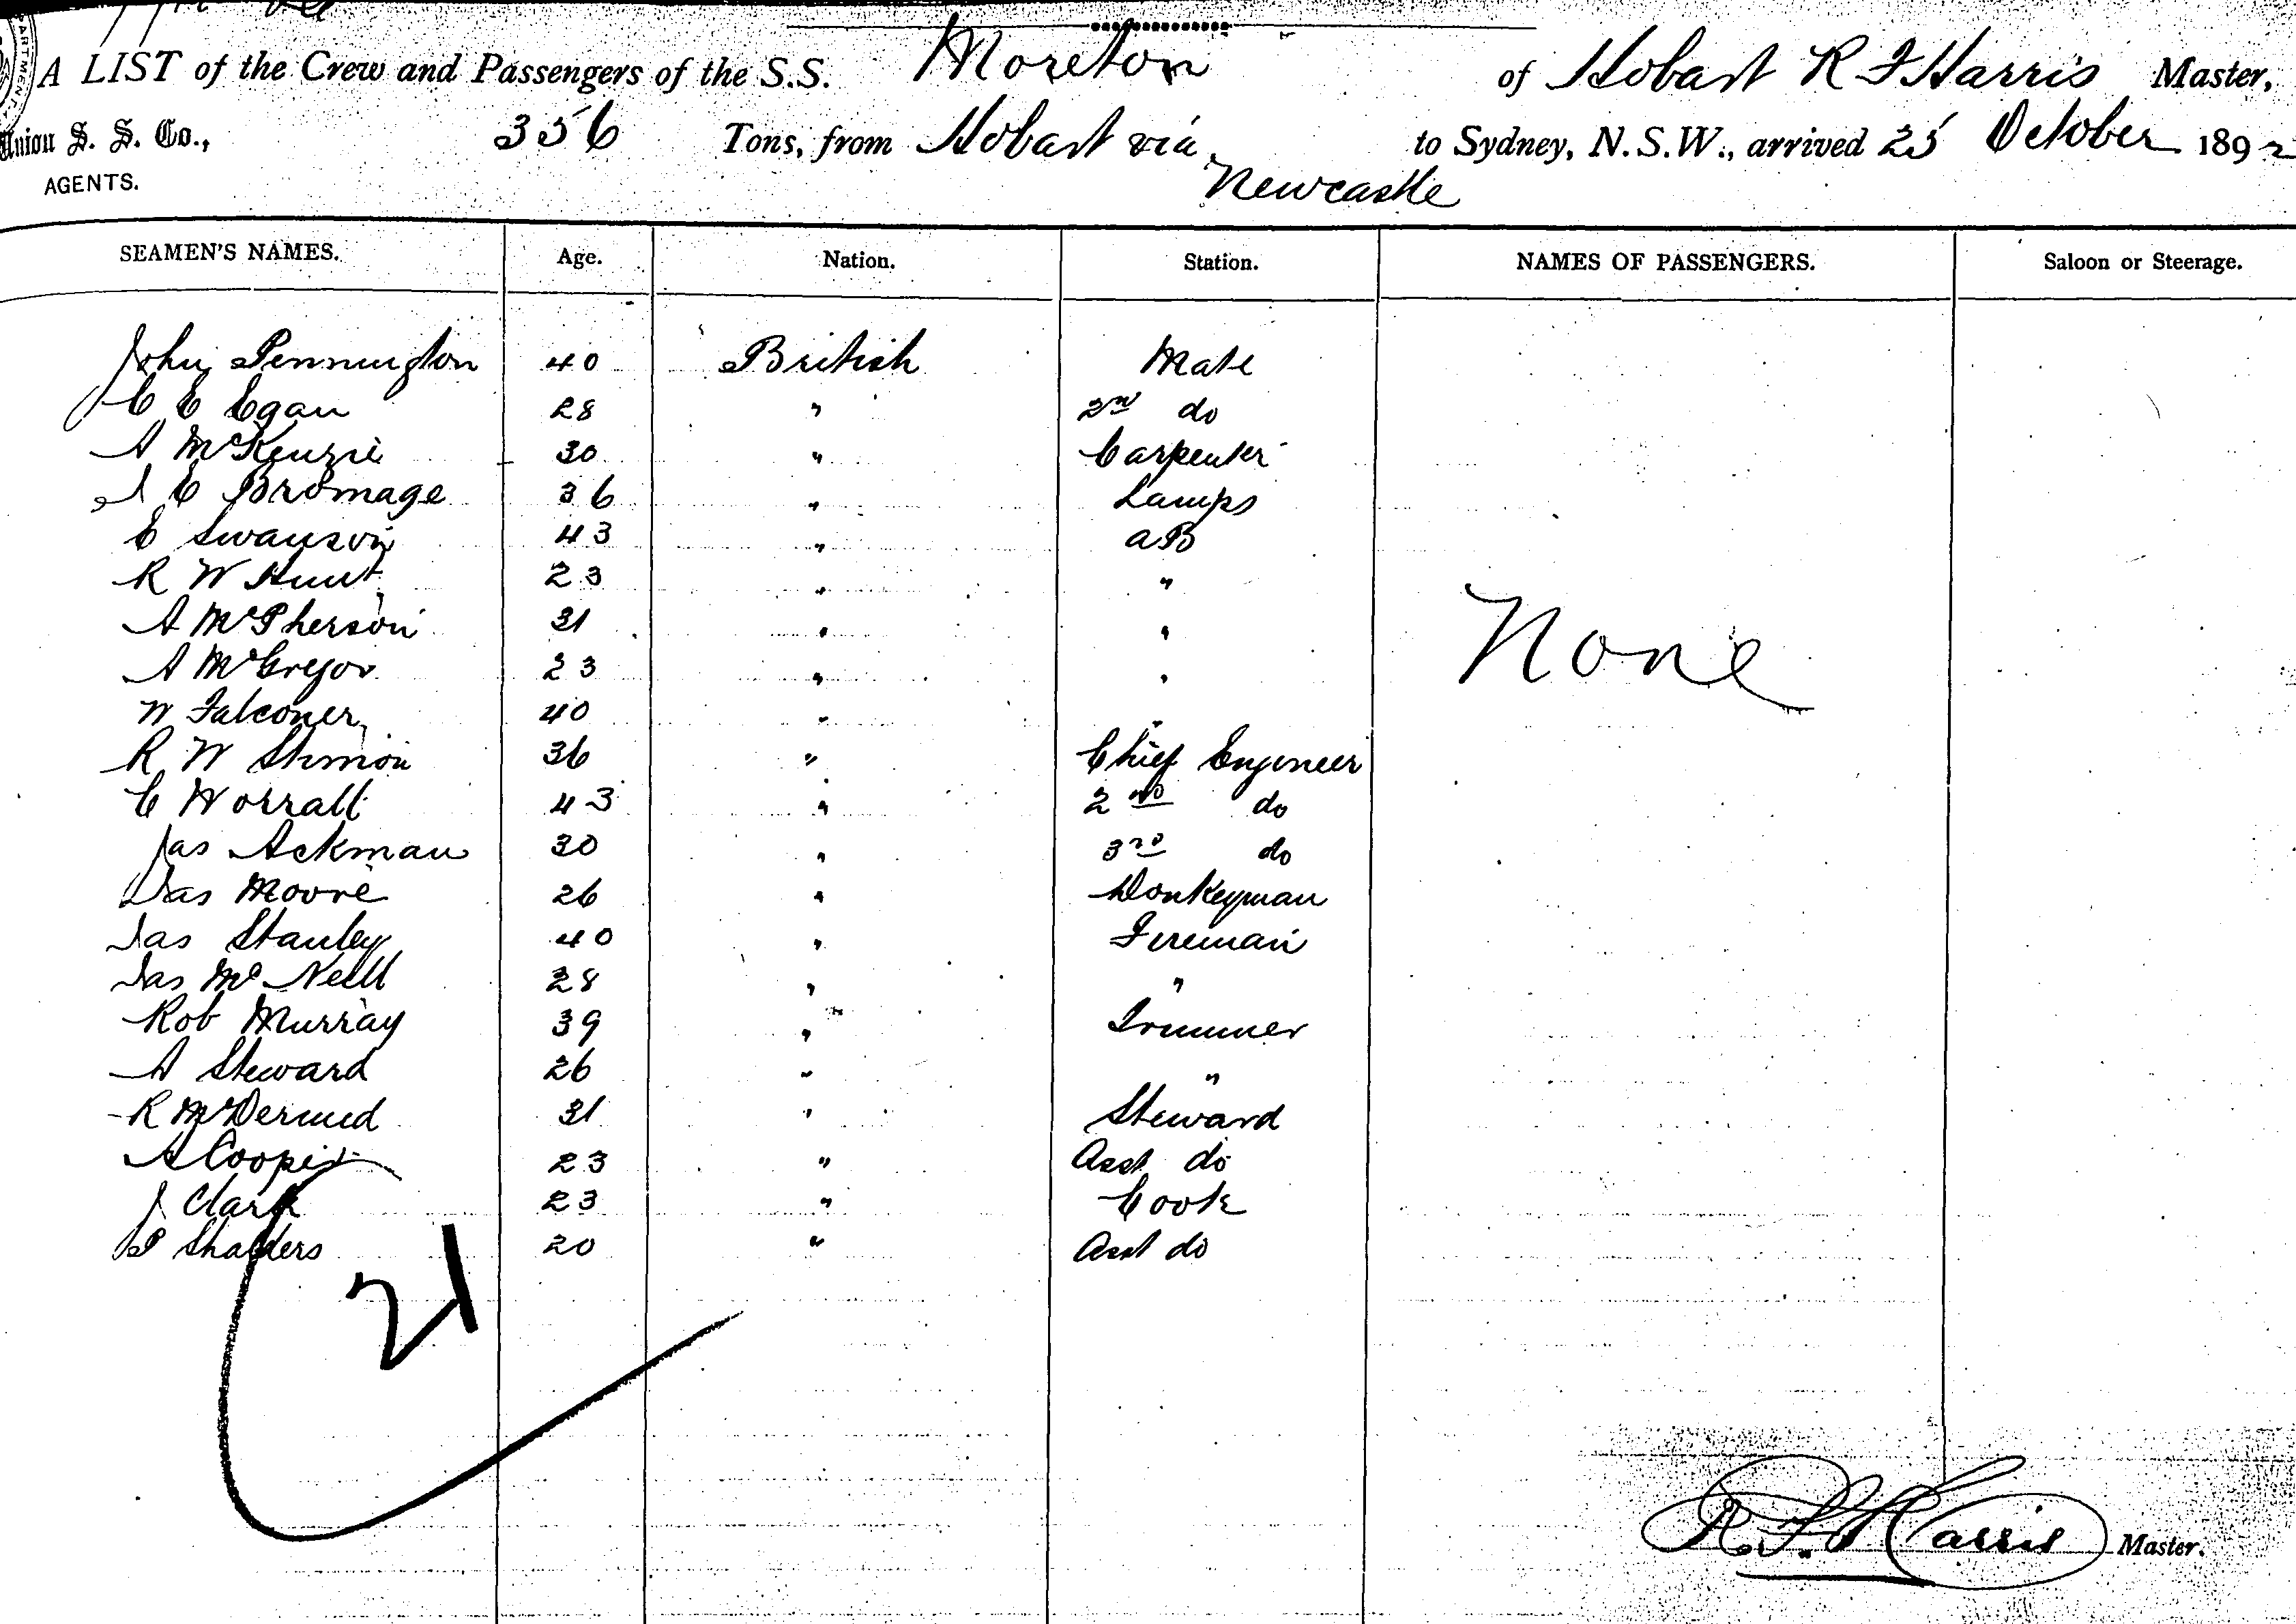 A LIST of the Crew and Passengers of the S.S. Moreton of Hobart R F Harris Master,
Union S. S. Co., 356 Tons, from Hobart via Newcastle to Sydney, N.S.W., arrived 25 October 1892
AGENTS.
SEAMEN'S NAMES. Age. Nation. Station. NAMES OF PASSENGERS. Saloon or Steerage.
John Pennington 40 British Mate
C E Egan 28 " 2nd do
A McKenzie 30 " Carpenter
J E Bromage 36 " Lamps
E Swanson 43 " AB
R W Hunt 23 " "
A McPherson 31 " "
A McGregor 23 " "
None
W Falconer 40 " "
R W 36 " Chief Engineer
C Worrall 43 " 2nd do
Jas Ackman 30 " 3rd do
Jas Moore 26 " Donkeyman
Jas Stanley 40 " Fireman
Jas McNeill 28 " "
Rob Murray 39 " Trimmer
A Steward 26 " "
R McDermid 31 " Steward
A Cooper 23 " Asst do
J Clark 23 " Cook
P Shalders 20 " Asst do
21
R. F. Harris Master.